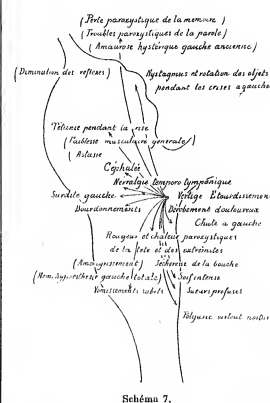 (Perte paroxystique de la memoire)
(Troubles paroxystiques de la parole)
(Amaurose hystérique gauche ancienne)
(Diminution des reflexes)
Nystagmus et rotation des objets
pendant les crises a gauche
Tétense pendant la crise
(Faiblesse musculaire generale)
Astasie
Céphalée
Nevralgie temporo tympanique
Surdite gauche
Vertige Etourdissement
Bourdonnements
Derobement douloureux
Chute a gauche
Rougeur et chaleur paroxystiques
de la tete et des extremites
(Amaigrissement)
Secheresse de la bouche
(Hem. hypoesthesie gauche totale)
Soif intense
Vomissements subits
Sueurs profuses
Polyurie surtout
Schéma 7.